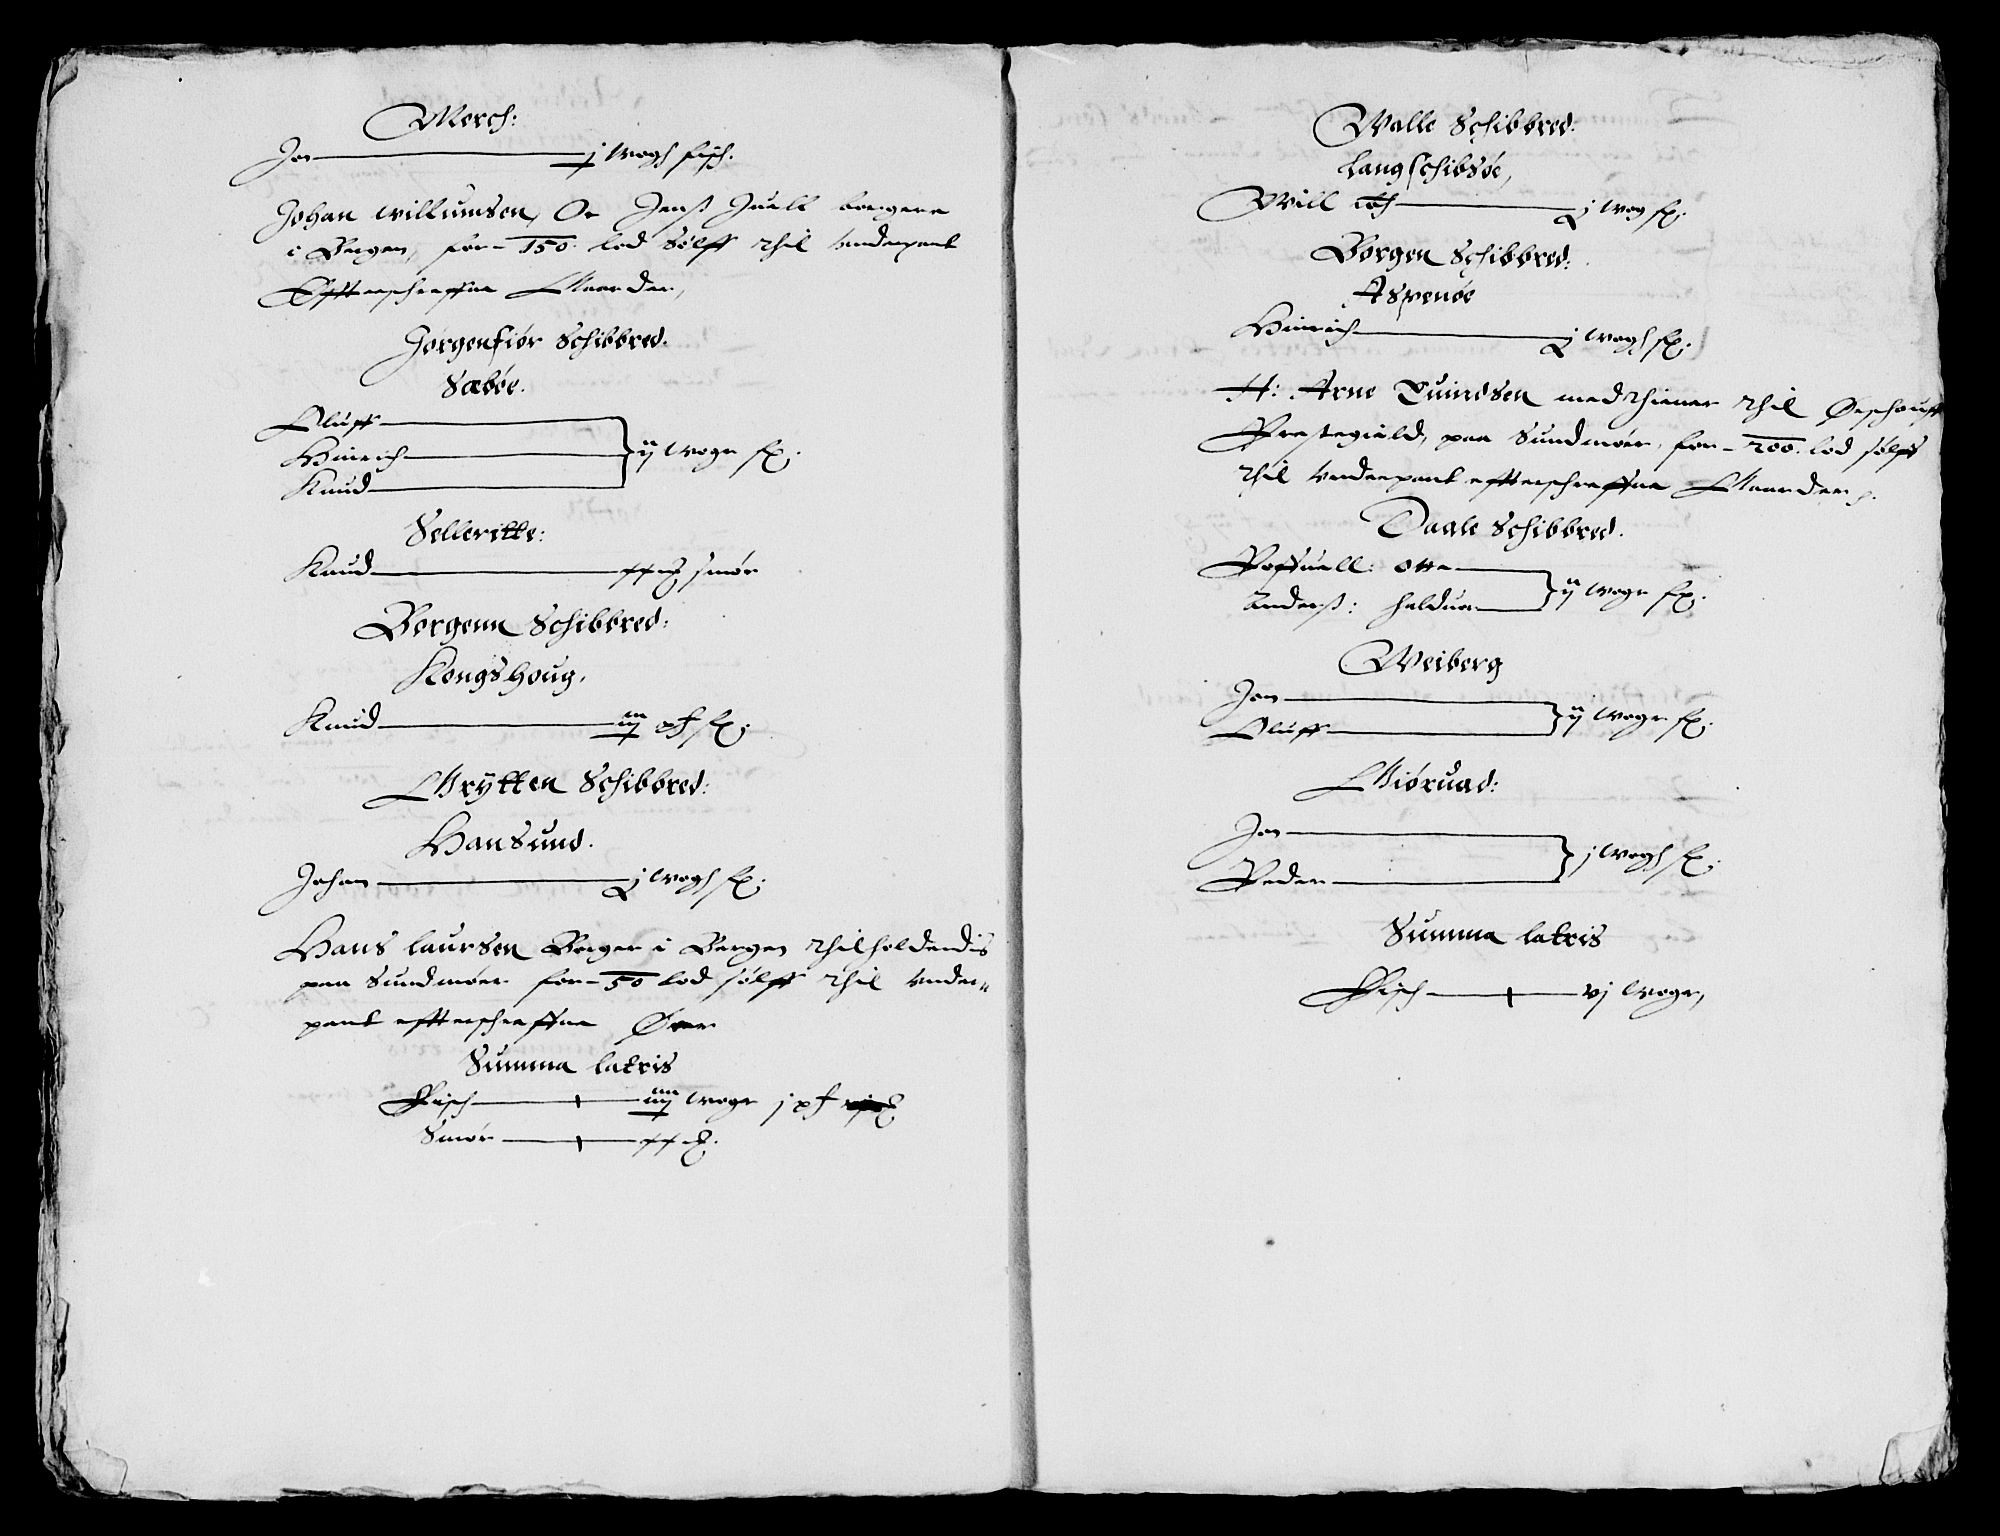 Merch:
Jon — j wogh fisch.
Johan willumsen, Oc Jenß Juell borgere
i Bergen, for – 150 lod Sølff thil Underpant
Effterschreffne Gaarder,
Jørgenfiør Schibbred.
Sæbøe.
Oluff
Hinrich
Knud — ij woge f.
Selleritte:
Knud — smør
Borgenn Schibbred:
Kongshoug.
Knud — iij pf f.
Grytten Schibbred:
Hansund.
Johan — j wogh f.
Hans laursen Borger i Bergen thilholdendis
paa Sundmøer for – 50 lod sølff thil Under-
pant effterschreffne Øer
Summa lateris
Fisch — iiij woge j pf
Smør —
Walle Schibbred.
langschibsøe,
Will — j wog f.
Borgen Schibbred:
Aspenøe
Hinrich — j wogh f.
H: Arne Euindsen med thiener thil Ørschouff
Prestegield, paa Sundmøer, for – 200 lod sølff
thil Underpant effterschreffne Gaarder.
Daale Schibbred.
Poffuell: Otte
Anderß: halduor — ij woge f.
Weiberg
Jon
Oluff — ij woge f.
Giøruad:
Jon
Peder — j wogh f.
Summa lateris
Fisch — vj woge,